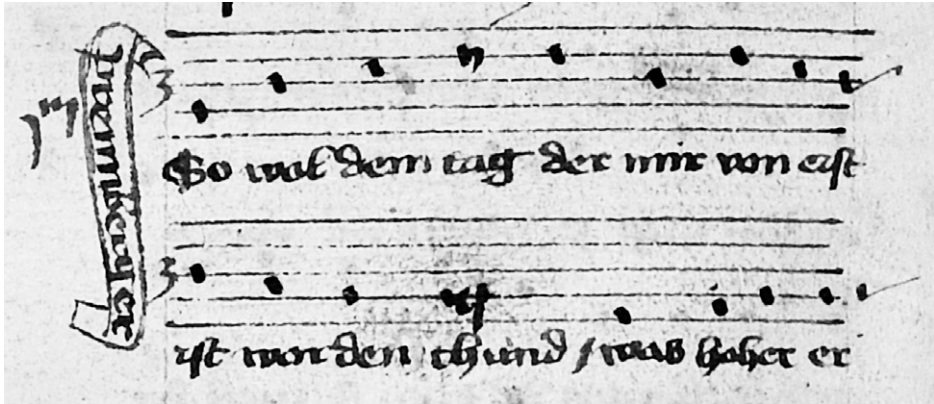 So wol dem tag der mir von erst
ist worden chund / was hoher er